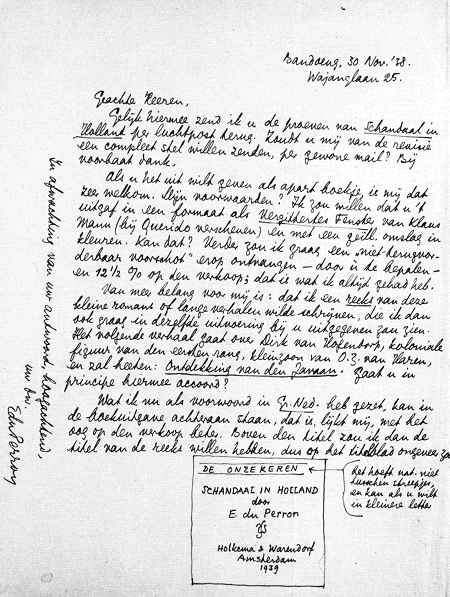 Bandoeng, 30 Nov. '38.
Wajanglaan 25.
Geachte Heeren,
Gelijk hiermee zend ik u de proeven van Schandaal in
Holland per luchtpost terug. Zoudt u mij van de revisie
een compleet stel willen zenden, per gewone mail? Bij
voorbaat dank.
Als u het uit wilt geven als apart boekje, is mij dat
zeer welkom. Mijn voorwaarden? Ik zou willen dat u 't
uitgaf in een formaat als Vergittertes Fenster van Klaus
Mann (bij Querido verschenen) en met een geïll. omslag in
kleuren. Kan dat? Verder zou ik graag een "niet-terugvor-
derbaar voorschot" erop ontvangen — door u te bepalen —
en 12½ % op den verkoop; dat is wat ik altijd gehad heb.
Van meer belang voor mij is: dat ik een reeks van deze
kleine romans of lange verhalen wilde schrijven, die ik dan
ook graag in dezelfde uitvoering bij u uitgegeven zou zien.
Het volgende verhaal gaat over Dirk van Hogendorp, koloniale
figuur van den eersten rang, kleinzoon van O.Z. van Haren,
en zal heeten: Ontdekking van den Javaan. Gaat u in
principe hiermee accoord?
Wat ik nu als voorwoord in Gr. Ned. heb gezet, kan in
de boekuitgave achteraan staan, dat is, lijkt mij, met het
oog op den verkoop beter. Boven den titel zou ik dan de
titel van de reeks willen hebben, dus op het titelblad ongeveer zoo
DE ONZEKEREN
SCHANDAAL IN HOLLAND
door
E. du Perron
Holkema & Warendorf
Amsterdam
1939
het hoeft nat. niet
tusschen streepjes,
en kan als u wilt
in kleinere letter
In afwachting van uw antwoord, hoogachtend,
uw dw.
EduPerron